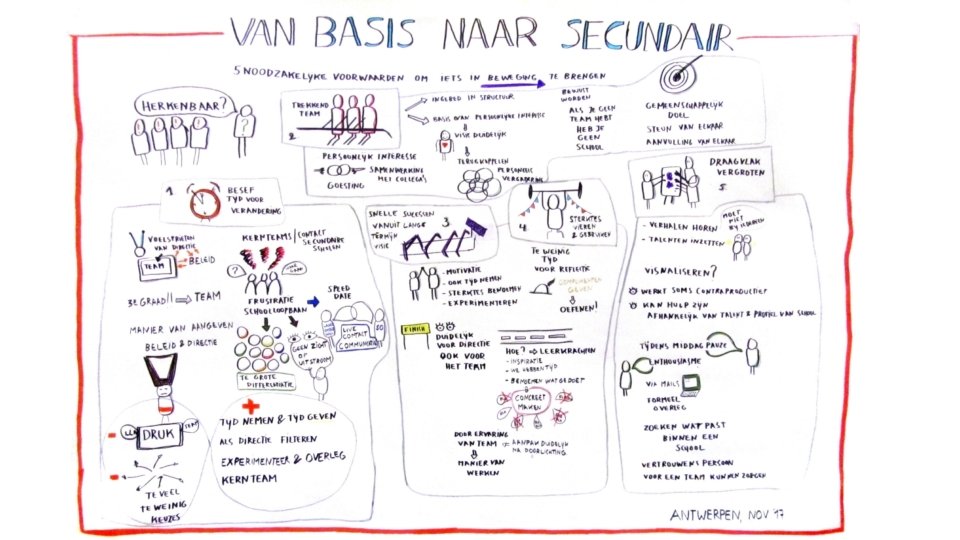 VAN BASIS NAAR SECUNDAIR
5 NOODZAKELYKE VOORWAARDEN OM IETS IN BEWEGING TE BRENGEN
HERKENBAAR?
?
TREKKEND
TEAM
2
INGEBED IN STRUCTUUR
BASIS VAN PERSOONLYKE INTERESSE
VISIE DUIDELYK
TERUGKOPPELEN
PERSONEELS
VERGADERING
PERSOONLYK INTERESSE
SAMENWERKING
MET COLLEGA'S
GOESTING
BEWUST
WORDEN
ALS JE GEEN
TEAM HEBT
HEB JE
GEEN
SCHOOL
GEMEENSCHAPPELYK
DOEL
STEUN VAN ELKAAR
AANVULLING VAN ELKAAR
1
BESEF
TYD VOOR
VERANDERING
VOELSPRIETEN
VAN DIRECTIE
TEAM
BELEID
3E GRAAD!! TEAM
MANIER VAN AANGEVEN
BELEID & DIRECTIE
LLN
DRUK
TEAM
TE VEEL
TE WEINIG
KEUZES
KERNTEAMS CONTACT
SECUNDAIRE
SCHOLEN
?
FRUSTRATIE
SCHOOLLOOPBAAN
SPEED
DATE
LIVE
CONTACT
COMMUNICATIE
SO
GEEN ZICHT
OP
UITSTROOM
TE GROTE
DIFFERENTIATIE
+
TYD NEMEN & TYD GEVEN
ALS DIRECTIE FILTEREN
EXPERIMENTEER & OVERLEG
KERNTEAM
SNELLE SUCESSEN
VANUIT LANGE
TERMYN
VISIE
3
- MOTIVATIE
- OOK TYD NEMEN
- STERKTES BENOEMEN
- EXPERIMENTEREN
FINISH
DUIDELYK
VOOR DIRECTIE
OOK VOOR
HET TEAM
4
STERKTES
VIEREN
& GEBRUIKEN
TE WEINIG
TYD
VOOR REFLECTIE
COMPLIMENTEN
GEVEN
OEFENEN!
HOE? LEERKRACHTEN
- INSPIRATIE
- WE HEBBEN TYD
- BENOEMEN WAT GE DOET
CONCREET
MAKEN
DOOR ERVARING
VAN TEAM = AANPAK DUIDELYK
NA DOORLICHTING
MANIER VAN
WERKEN
DRAAGVLAK
VERGROTEN
5
- VERHALEN HOREN
- TALENTEN INZETTEN
MOET
NIET
BY IEDEREEN
VISUALISEREN?
WERKT SOMS CONTRAPRODUCTIEF
KAN HULP ZYN
AFHANKELYK VAN TALENT & PROFIEL VAN SCHOOL
TYDENS MIDDAG PAUZE
ENTHOUSIASME
VIA MAILS
FORMEEL
OVERLEG
ZOEKEN WAT PAST
BINNEN EEN
SCHOOL
VERTROUWENS PERSOON
VOOR EEN TEAM KUNNEN ZORGEN
ANTWERPEN, NOV '17